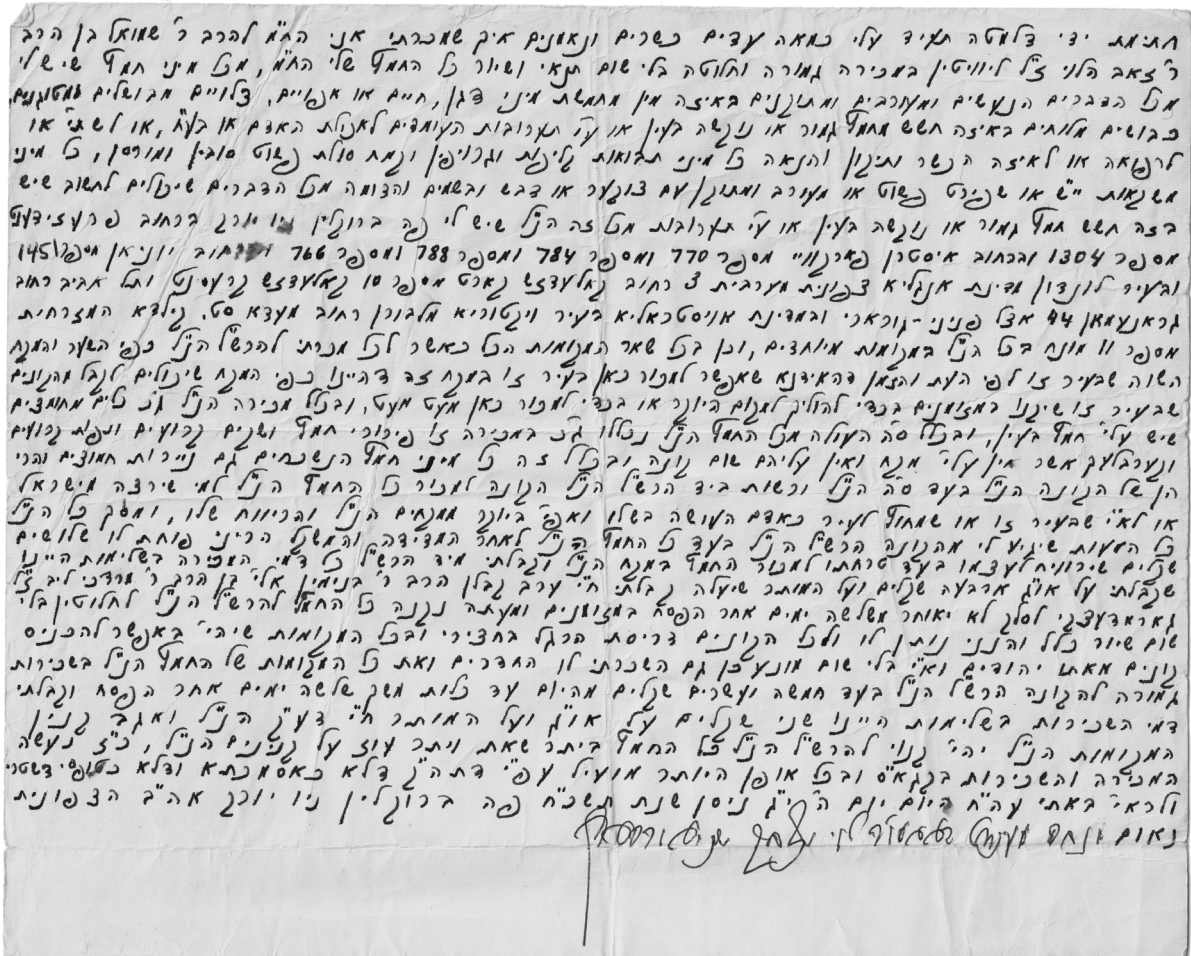 חתימת ידי דלמטה תעיד עלי כמאה עדים כשרים ונאמנים איך שמכרתי אני הח"מ להרב ר' שמואל בן הרב
ר' זאב הלוי ז"ל ליוויטין במכירה גמורה וחלוטה בלי שום תנאי ושיור כל החמץ שלי הח"מ, מכל מיני חמץ שיש לי
מכל הדברים הנעשים ומעורבים ומתוקנים באיזה מין מחמשת מיני דגן, חיים או אפויים, צלויים מבושלים ומטוגנים,
כבושים מלוחים באיזה חשש מחמץ גמור או נוקשה בעין או ע"י תערובות העומדים לאכילת האדם או בע"ח, או לשתי' או
לרפואה או לאיזה הכשר ותיקון והנאה כל מיני תבואות קליפות וגרויפין וקמח סולת פשוט סובין ומורסן, כל מיני
משקאות יי"ש או שפירט פשוט או מעורב ומתוקן עם צוקער או דבש ובשמים והדומה מכל הדברים שיכולים לחשוב שיש
בזה חשש חמץ גמור או נוקשה בעין או ע"י תערובות מכל זה הנ"ל שיש לי פה ברוקלין ניו יורק ברחוב פרעזידענט
מספר 1304 וברחוב איסטרן פארקוויי מספר 770 ומספר 784 ומספר 788 ומספר 766 וברחוב יוניאן מספר 145
ובעיר לונדון מדינת אנגליא צפונית מערבית 3 רחוב קאלעדזש קארט מספר 10 קאלעדזש קרעסנט ותל אביב רחוב
גראנעמאן 44 אצל פניני-גורארי ובמדינת אויסטראליא בעיר ויקטוריא מלבורן רחוב מעדא סט. קילדא המזרחית
מספר 11 מונח בכל הנ"ל במקומות מיוחדים, וכן בכל שאר המקומות הכל כאשר לכל מכרתי להרש"ל הנ"ל כפי השער והמקח
השוה שבעיר זו לפי העת והזמן דהאידנא שאפשר למכור כאן בעיר זו במקח זה דהיינו כפי המקח שיכולים לקבל מהקונים
שבעיר זו שיקנו במזומנים בכדי להוליך למקום היוקר או בכדי למכור כאן מעט מעט, ובכלל מכירה הנ"ל ג"כ כלים מחומצים
שיש עלי' חמץ בעין, ובכלל ס"ה העולה מכל החמץ הנ"ל נכללו ג"כ במכירה זו פירורי חמץ ושקים קרועים וקפות קרועים
וקערבלעך אשר אין עלי' מקח ואין עליהם שום קונה ובכלל זה כל מיני חמץ הנשכחים גם ניירות חמוצים והרי
הן של הקונה הנ"ל בעד ס"ה הנ"ל ורשות ביד הרש"ל הנ"ל הקונה למכור כל החמץ הנ"ל למי שירצה מישראל
או לא"י שבעיר זו או שמחוץ לעיר כאדם העושה בשלו ואפי' ביוקר ממקחים הנ"ל והריווח שלו, ומסך כל הנ"ל
כל המעות שיגיע לי מהקונה הרש"ל הנ"ל בעד כל החמץ הנ"ל לאחר המדידה והמשקל הריני פוחת לו שלושים
שקלים שירוויח לעצמו בעד טרחתו למכור החמץ במקח הנ"ל וקבלתי מיד הרש"ל כל דמי המכירה בשלימות היינו
שקבלתי על או"ג ארבעה שקלים ועל המותר שיעלה קבלתי ח"י ערב קבלן הרב ר' בנימין אלי' בן הרב ר' מרדכי ליב ז"ל
גארמדעצקי לסלק לא יאוחר משלשה ימים אחר הפסח במזומנים ומעתה נקנה כל החמץ להרש"ל הנ"ל לחלוטין בלי
שום שיור כלל והנני נותן לו ולכל הקונים דריסת הרגל בחצירי ובכל המקומות שיהי' באפשר להכניס
קונים מאתו יהודים וא"י בלי שום מונע כן גם השכרתי לו החדרים ואת כל המקומות של החמץ הנ"ל בשכירות
גמורה להקונה הרש"ל הנ"ל בעד חמשה ועשרים שקלים מהיום עד כלות משך שלשה ימים אחר הפסח וקבלתי
דמי השכירות בשלימות היינו שני שקלים על או"ג ועל המותר ח"י דע"ק הנ"ל ואגב קנין
המקומות הנ"ל יהי' קנוי להרש"ל הנ"ל כל החמץ ביתר שאת ויתר עוז על קנינים הנ"ל, כ"ז נעשה
המכירה והשכירות בקגא"ס ובכל אופן היותר מועיל עפ"י דתה"ק דלא כאסמכתא ודלא כטופסי דשטרי
ולראי' באתי עה"ח היום יום ה' י"ג ניסן שנת תשכ"ח פה ברוקלין ניו יורק אה"ב הצפונית
נאום מנחם מענדל